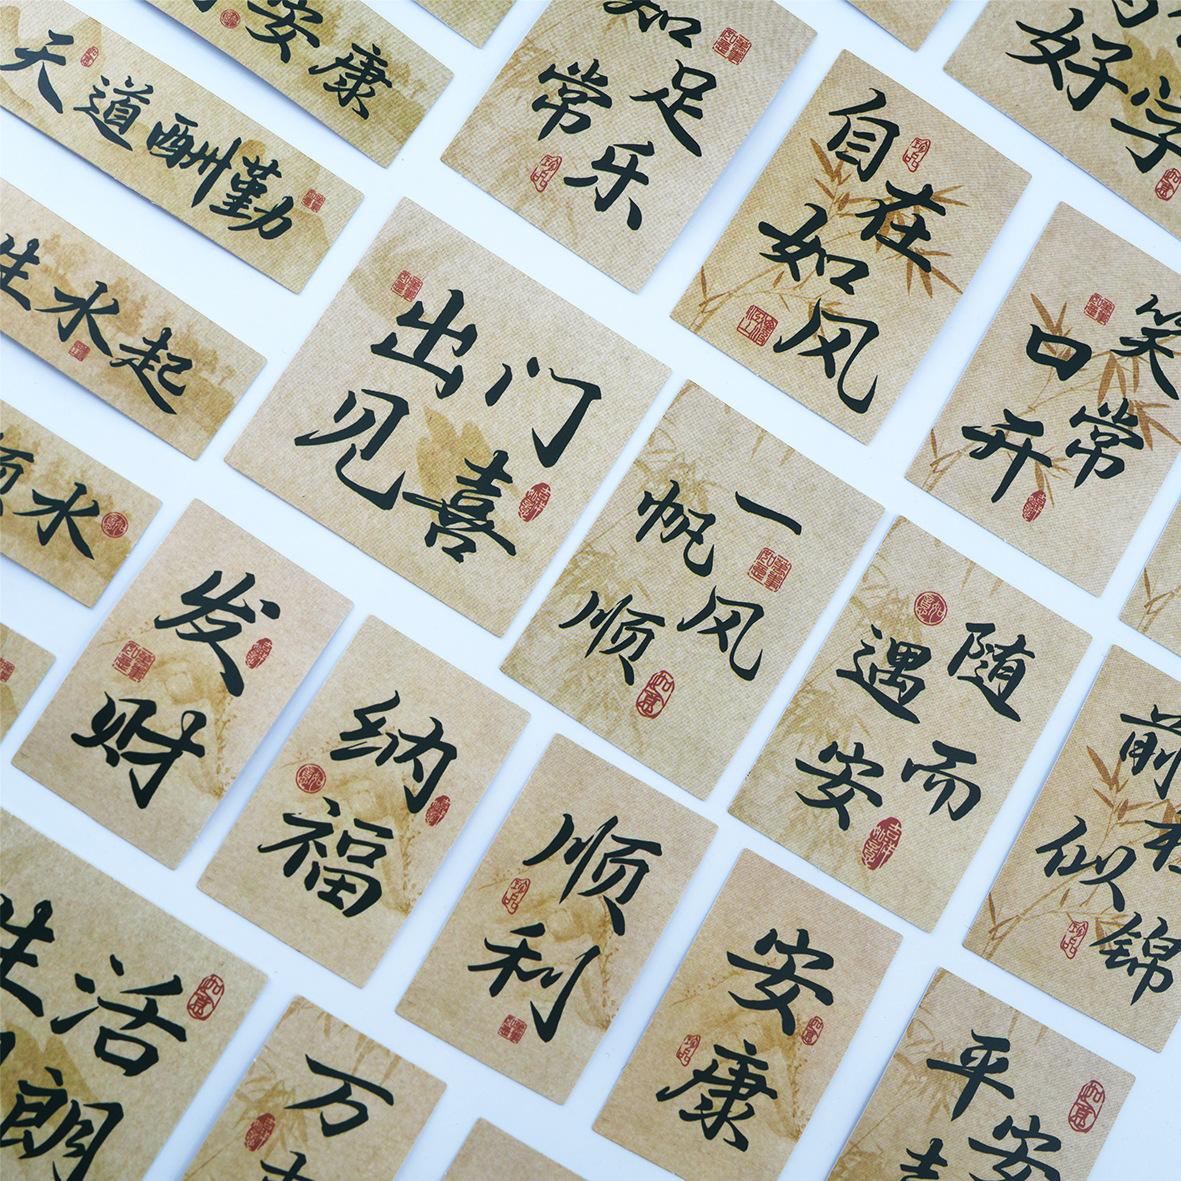 安康
天道酬勤
知足
常乐
自在
如风
好学
生水起
出门
见喜
笑口
常开
水
一帆
风顺
发财
纳福
随遇
而安
顺利
前
似锦
安康
生活
朗
万
平安